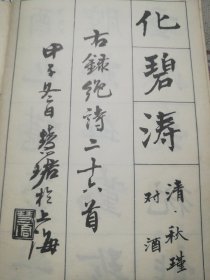 化碧涛
清·秋瑾
对酒
右录绝诗二十六首
甲子冬日慧珺於上海